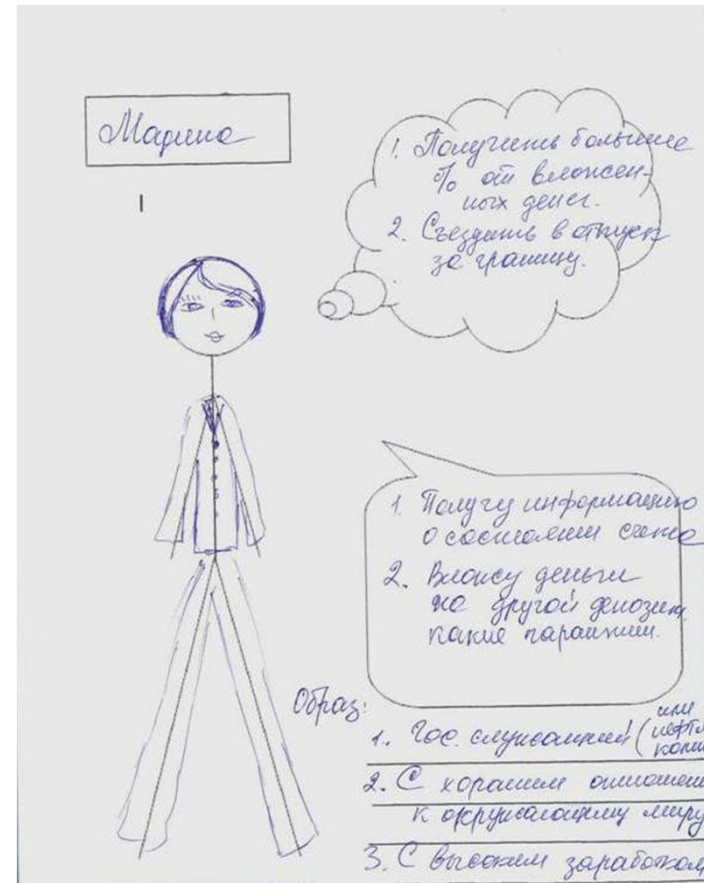 Марина
1. Получить большие
% от вложен-
ных денег.
2. Съездить в отпуск
за границу.
1. Получу информацию
о состоянии счета
2. Вложу деньги
на другой депозит.
какие
Образ:
1. Гос. служащий (или
2. С хорошим отношени
к окружающему миру
3. С высоким заработком